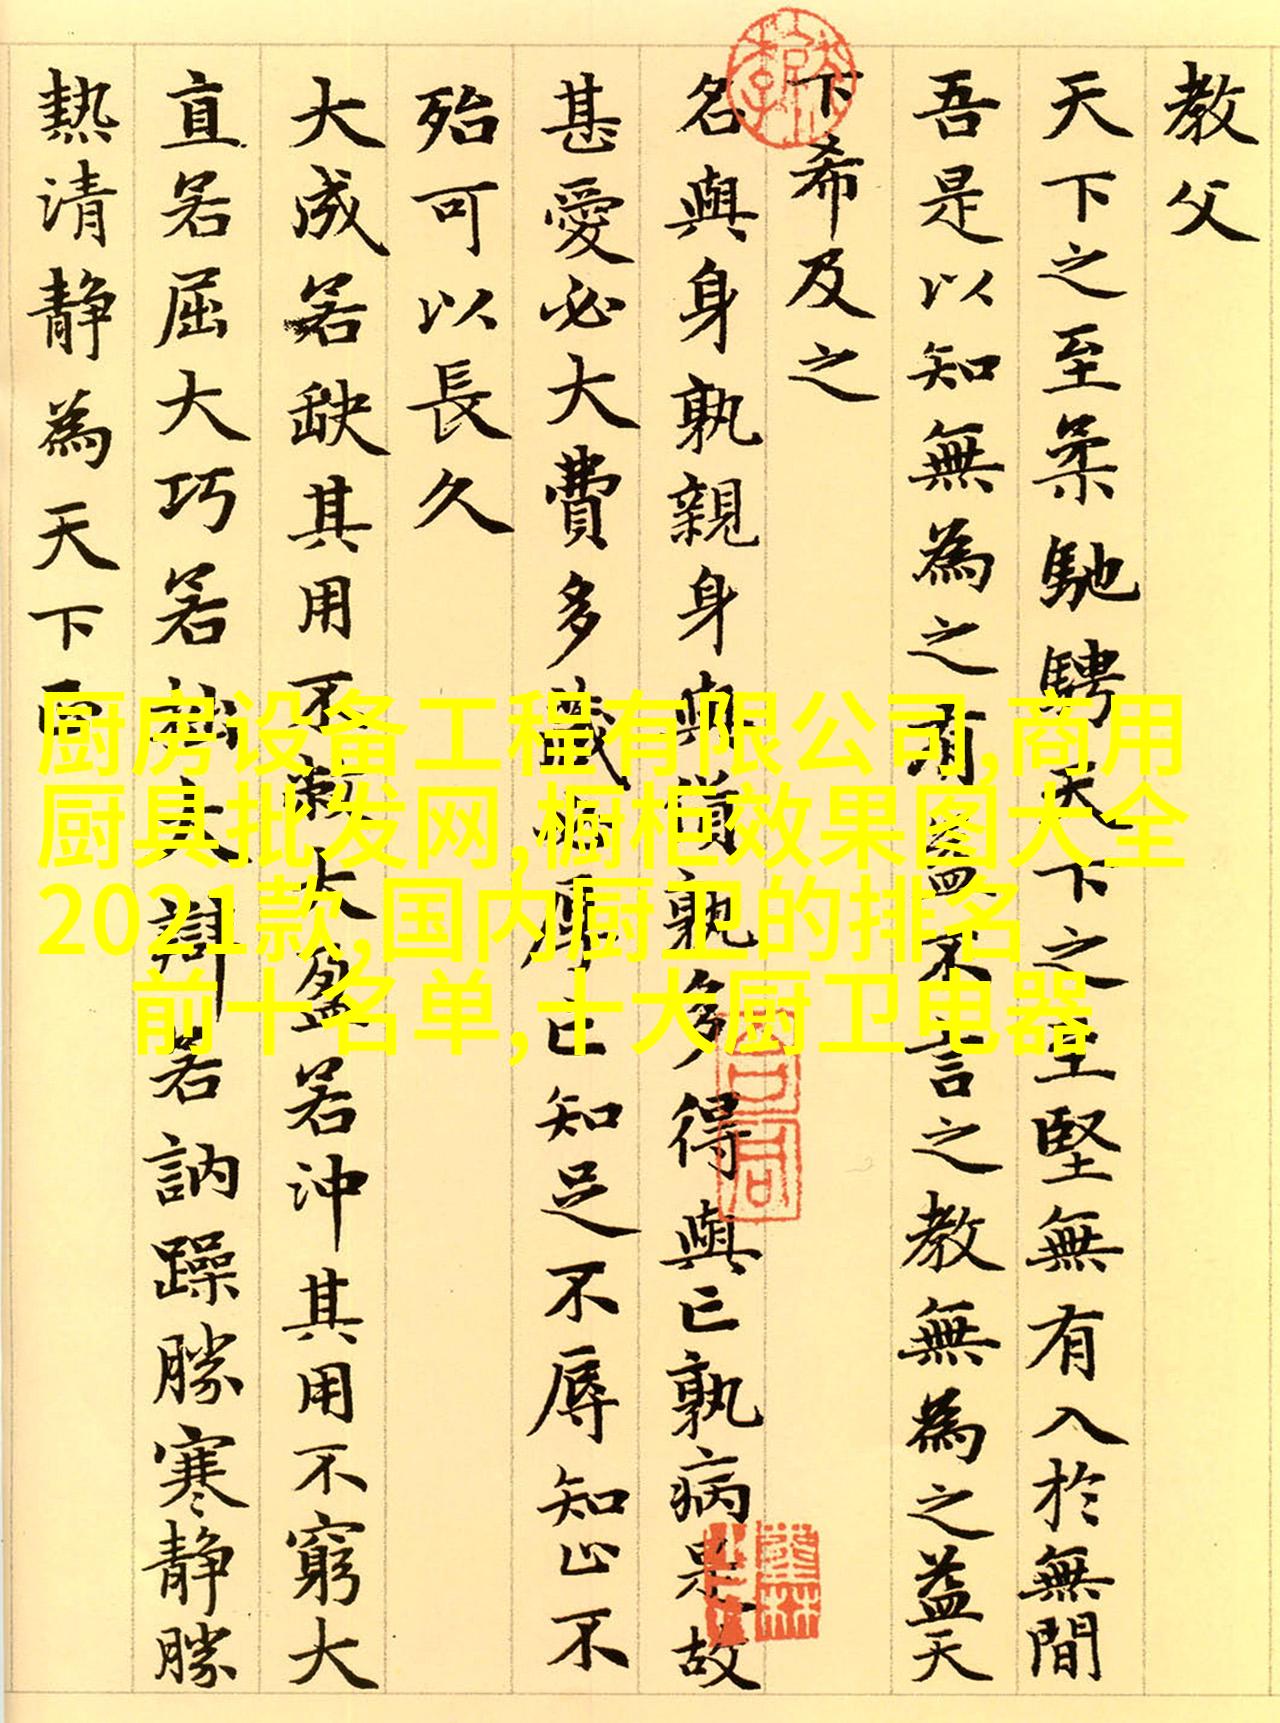 教父
天下之至柔馳騁天下之至堅無有入於無間
吾是以知無為之有益不言之教無為之益天
下希及之
名與身孰親身與貨孰多得與亡孰病是故
甚愛必大費多藏必厚亡知足不辱知止不
殆可以長久
大成若缺其用不敝大盈若沖其用不窮大
直若屈大巧若拙大辯若訥躁勝寒靜勝
熱清靜為天下正
厨房设备工程有限公司,商用
厨具批发网,橱柜效果图大全
2021款,国内厨卫的排名
前十名单,十大厨卫电器